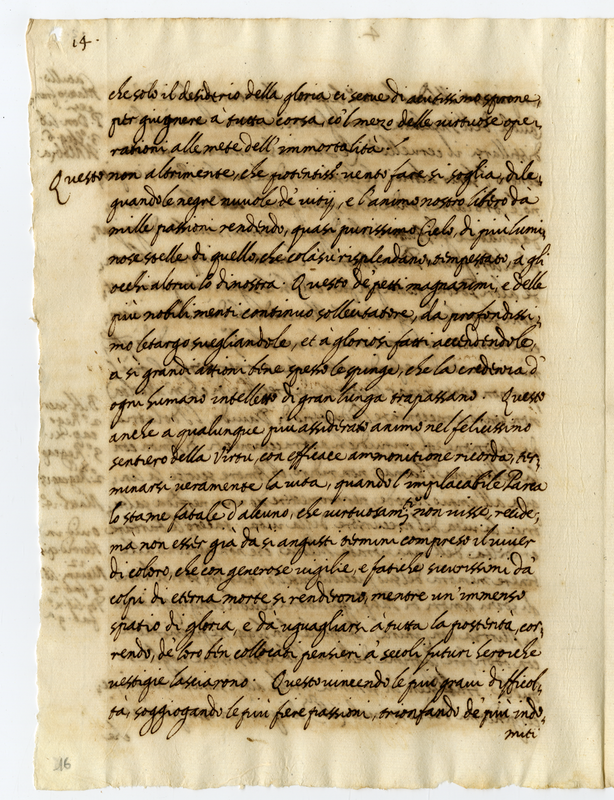 14.
che solo il desiderio della gloria ci serve di acutissimo sprone,
per giugnere à tutta corsa, co'l mezo delle virtuose ope,
rationi alle mete dell'immortalità.
Questo non altrimente, che potentiss.º vento fare si soglia, dile,
guando le negre nuvole de' vitij, e l'animo nostro libero da
mille passioni rendendo, quasi purissimo Cielo, di più lumi,
nose stelle di quello, che colà sù risplendano, tempestato, à gli
occhi altrui lo dimostra. Questo de' petti magnanimi, e delle
più nobili menti continuo sollecitatore, dà profondissi,
mo letargo svegliandole, et à gloriosi fatti accendendole,
à si grandi attioni bene spesso le spinge, che la credenza d'
ogni humano intelletto di gran lunga trapassano. Questo
anche à qualunque più assiderato animo nel felicissimo
sentiero della Virtù, con efficace ammonitione ricorda, ter,
minarsi veramente la vita, quando l'implacabile Parca
lo stame fatale d'alcuno, che vertuosam.te non visse, recide,
mà non esser già dà sì angusti termini compreso il viver
di coloro, che con generose vigilie, e fatiche sicurissimi dà
colpi di eterna morte si renderono, mentre un'immenso
spatio di gloria, e dà uguagliarsi à tutta la posterità, cor,
rendo, de' loro ben collocati pensieri a secoli futuri heroiche
vestigie lasciarono. Questo vincendo le più gravi difficol,
tà, soggiogando le più fiere passioni, trionfando de' più indo,
miti
16